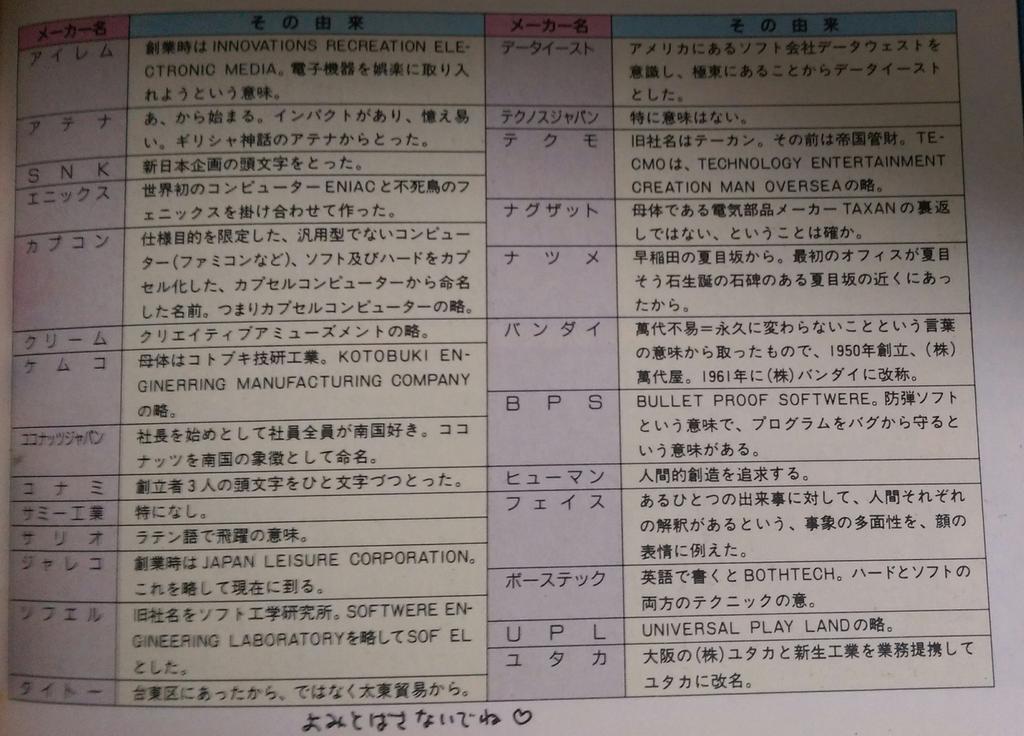 メーカー名 その由来
アイレム 創業時はINNOVATIONS RECREATION ELE-
CTRONIC MEDIA。電子機器を娯楽に取り入
れようという意味。
アテナ あ、から始まる。インパクトがあり、憶え易
い。ギリシャ神話のアテナからとった。
SNK 新日本企画の頭文字をとった。
エニックス 世界初のコンピューターENIACと不死鳥のフ
ェニックスを掛け合わせて作った。
カプコン 仕様目的を限定した、汎用型でないコンピュー
ター(ファミコンなど)、ソフト及びハードをカプ
セル化した、カプセルコンピューターから命名
した名前。つまりカプセルコンピューターの略。
クリーム クリエイティブアミューズメントの略。
ケムコ 母体はコトブキ技研工業。KOTOBUKI EN-
GINERRING MANUFACTURING COMPANY
の略。
ココナッツジャパン 社長を始めとして社員全員が南国好き。ココ
ナッツを南国の象徴として命名。
コナミ 創立者3人の頭文字をひと文字づつとった。
サミー工業 特になし。
サリオ ラテン語で飛躍の意味。
ジャレコ 創業時はJAPAN LEISURE CORPORATION。
これを略して現在に到る。
ソフエル 旧社名をソフト工学研究所。SOFTWERE EN-
GINEERING LABORATORYを略してSOF EL
とした。
タイトー 台東区にあったから、ではなく太東貿易から。
メーカー名 その由来
データイースト アメリカにあるソフト会社データウェストを
意識し、極東にあることからデータイースト
とした。
テクノスジャパン 特に意味はない。
テクモ 旧社名はテーカン。その前は帝国管財。TE-
CMOは、TECHNOLOGY ENTERTAINMENT
CREATION MAN OVERSEAの略。
ナグザット 母体である電気部品メーカーTAXANの裏返
しではない、ということは確か。
ナツメ 早稲田の夏目坂から。最初のオフィスが夏目
そう石生誕の石碑のある夏目坂の近くにあっ
たから。
バンダイ 萬代不易＝永久に変わらないことという言葉
の意味から取ったもので、1950年創立、(株)
萬代屋。1961年に(株)バンダイに改称。
BPS BULLET PROOF SOFTWERE。防弾ソフト
という意味で、プログラムをバグから守ると
いう意味がある。
ヒューマン 人間的創造を追求する。
フェイス あるひとつの出来事に対して、人間それぞれ
の解釈があるという、事象の多面性を、顔の
表情に例えた。
ボーステック 英語で書くとBOTHTECH。ハードとソフトの
両方のテクニックの意。
UPL UNIVERSAL PLAY LANDの略。
ユタカ 大阪の(株)ユタカと新生工業を業務提携して
ユタカに改名。
よみとばさないでね♡